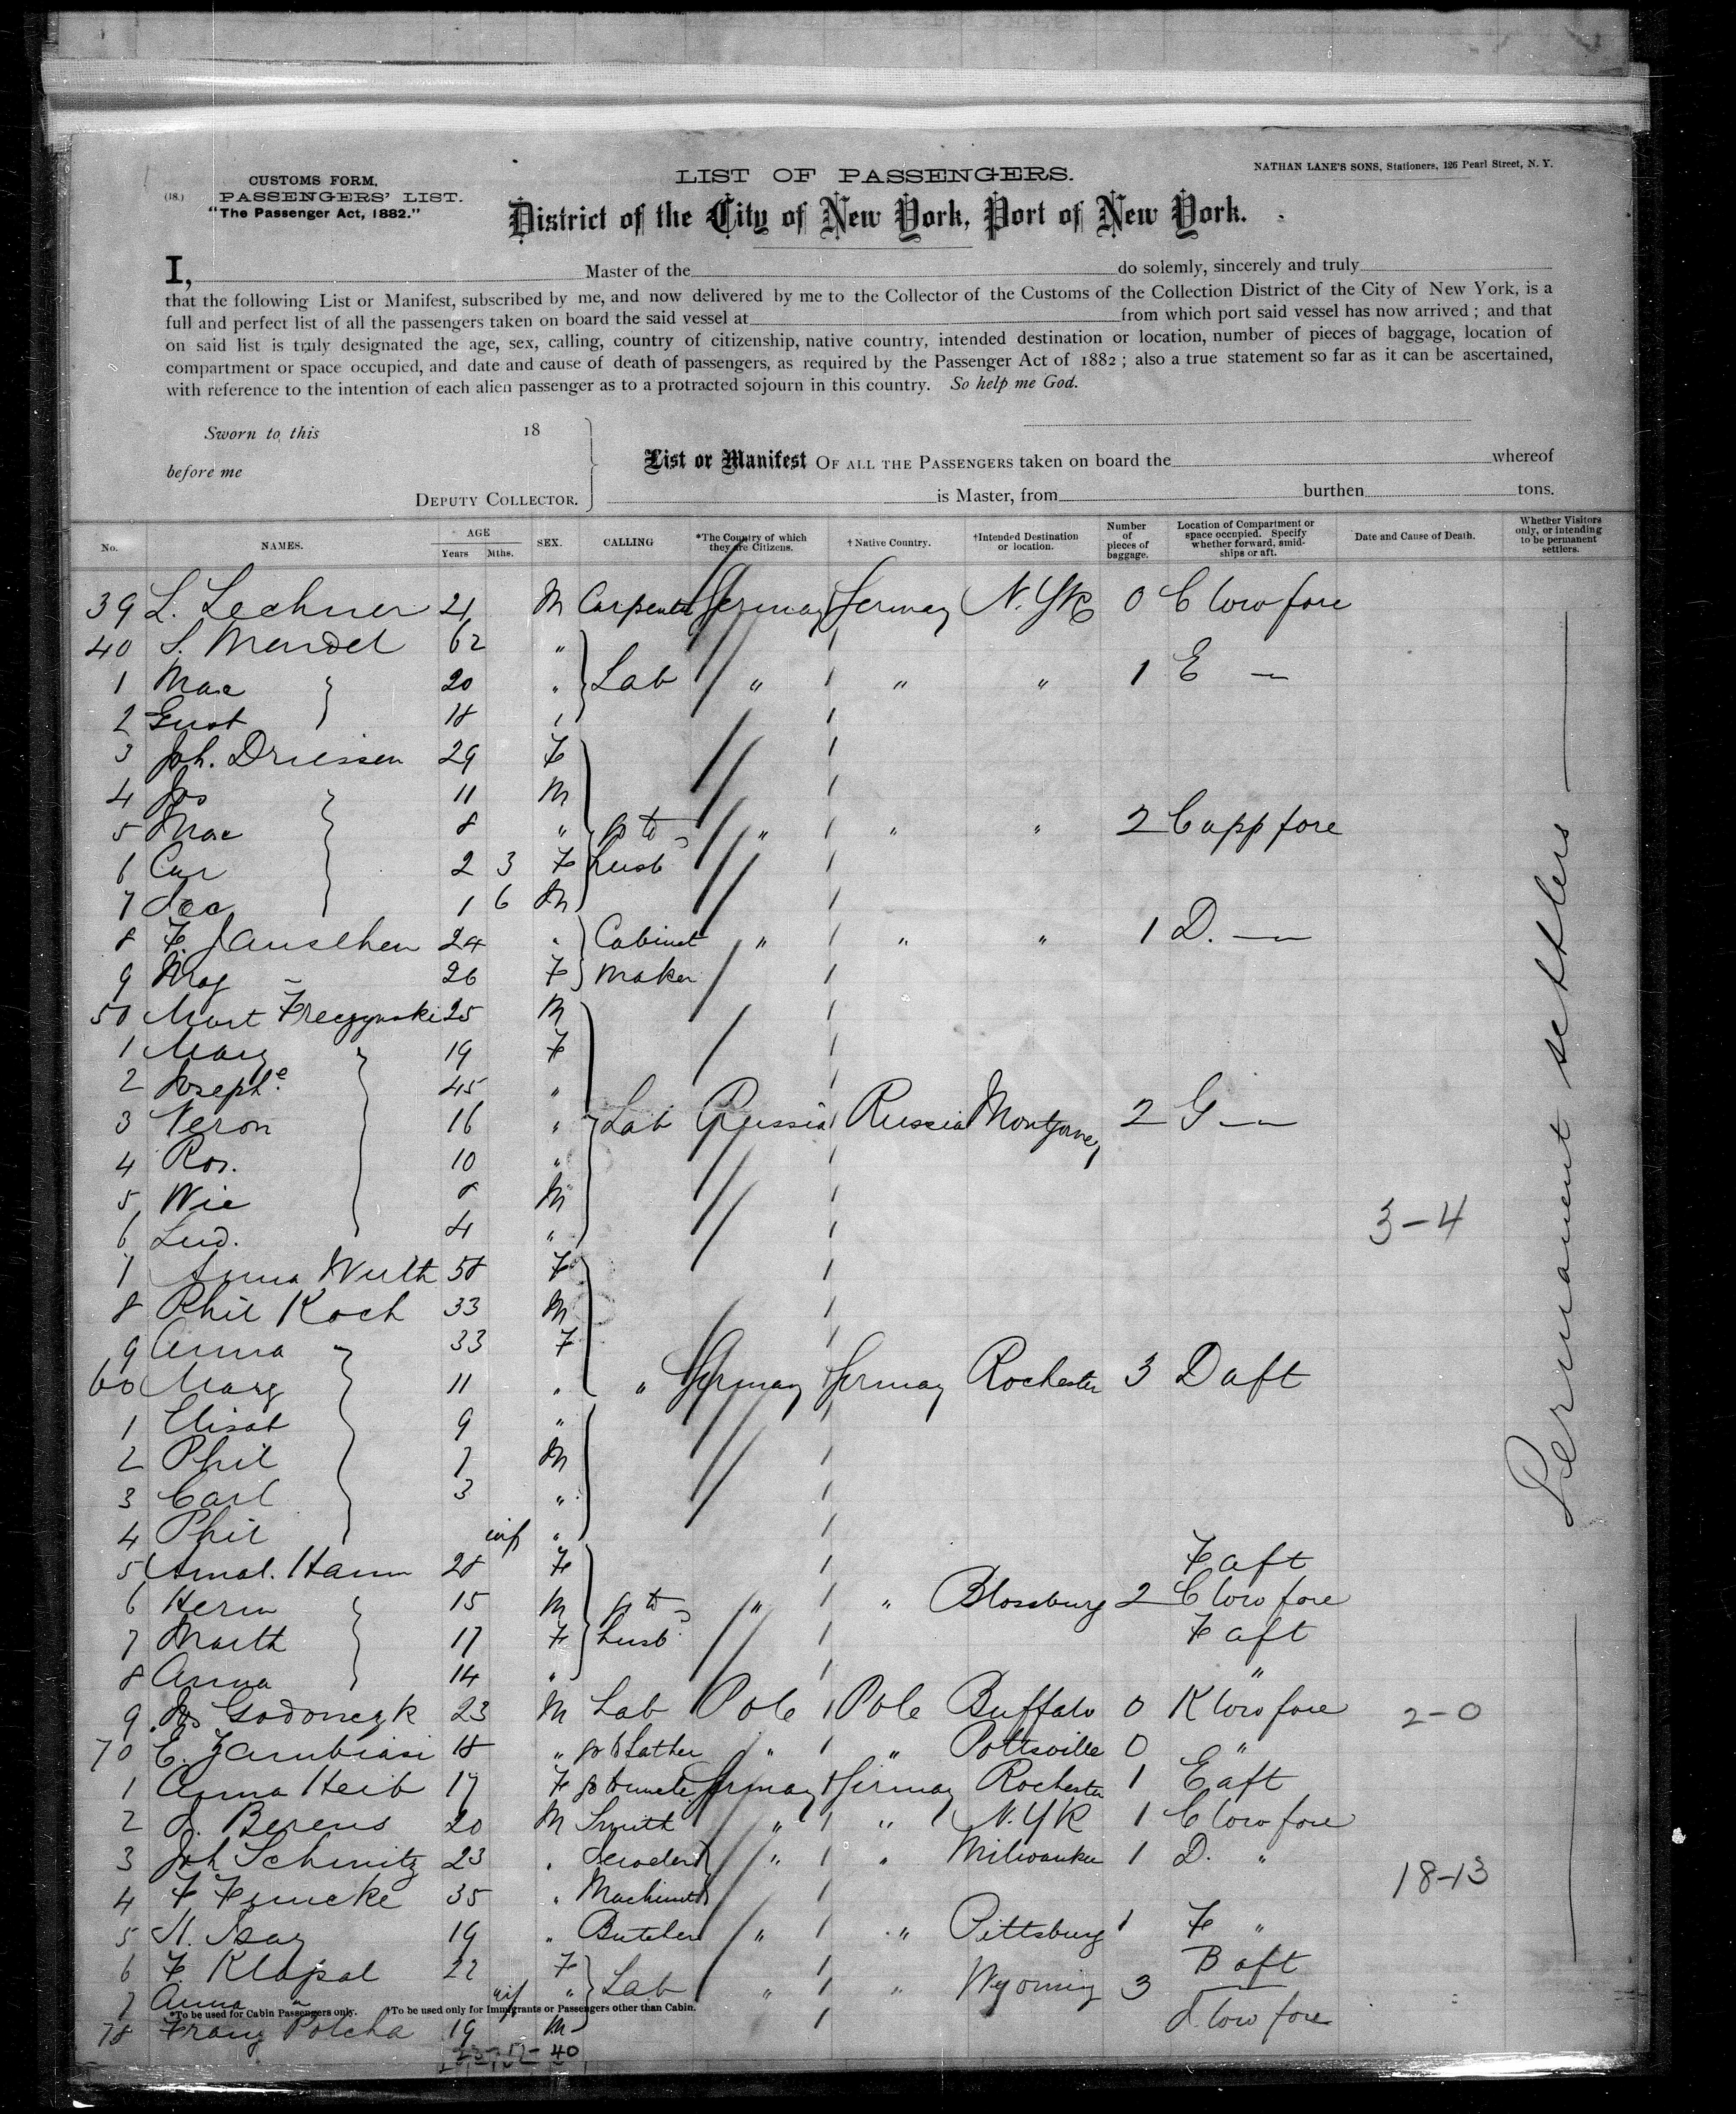 CUSTOMS FORM.
(18.) PASSENGERS' LIST.
"The Passenger Act, 1882."
LIST OF PASSENGERS.
NATHAN LANE'S SONS, Stationers, 126 Pearl Street, N. Y.
District of the City of New York, Port of New York.
I, Master of the do solemly, sincerely and truly
that the following List or Manifest, subscribed by me, and now delivered by me to the Collector of the Customs of the Collection District of the City of New York, is a
full and perfect list of all the passengers taken on board the said vessel at from which port said vessel has now arrived; and that
on said list is truly designated the age, sex, calling, country of citizenship, native country, intended destination or location, number of pieces of baggage, location of
compartment or space occupied, and date and cause of death of passengers, as required by the Passenger Act of 1882; also a true statement so far as it can be ascertained,
with reference to the intention of each alien passenger as to a protracted sojourn in this country. So help me God.
Sworn to this 18
before me
DEPUTY COLLECTOR.
List or Manifest OF ALL THE PASSENGERS taken on board the whereof
is Master, from burthen tons.
No. NAMES. AGE Years Mths. SEX. CALLING *The Country of which they are Citizens. †Native Country. †Intended Destination or location. Number of pieces of baggage. Location of Compartment or space occupied. Specify whether forward, amidships or aft. Date and Cause of Death. Whether Visitors only, or intending to be permanent settlers.
39 L. Lechner 21 M Carpenter Germay Germay N.Yk 0 C low fore
40 S. Mendel 62 "
1 Max 20 " Lab " " " 1 E —
2 Gust 18 "
3 Joh. Driessen 29 F
4 Jos 11 M
5 Max 8 " go to " " " 2 C upp fore
6 Car 2 3 F husb
7 1 6 M
8 F. 24 " Cabinet " " " 1 D. —
9 Mag " 26 F maker
50 Mart 25 M
1 Marg 19 F
2 Josephe 45 "
3 Veron 16 " Lab Russia Russia 2 G —
4 Ros. 10 "
5 8 M
6 Lud. 4 "
3-4
7 Anna Wirth 58 F
8 Phil Koch 33 M
9 Anna 33 F
60 Marg 11 " " Germay Germay Rochester 3 D aft
1 Elisab 9 "
2 Phil 7 M
3 Carl 3 "
4 Phil inf "
5 Amal. Hamm 28 F F aft
6 Herm 15 M go to " " Blossburg 2 C low fore
7 Marth 17 F husb F aft
8 Anna 14 " "
9 Jos Godonczk 23 M Lab Pole Pole Buffalo 0 K low fore 2-0
70 C. Zambrasi 18 " go to father " " Pottsville 0 "
1 Anna Heib 17 F go to uncle Germay Germay Rochester 1 E aft
2 J. Berens 20 M Smith " " N.YK 1 C low fore
3 Joh Schmitz 23 " " " Milwaukee 1 D. "
4 F Funcke 35 " Machinist 18-13
5 19 " Butcher " " Pittsburg 1 F "
6 F. Klapal 22 F B aft
7 Anna " inf " Lab " " Wyoming 3
*To be used for Cabin Passengers only. †To be used only for Immigrants or Passengers other than Cabin.
78 Franz Potcha 19 M d. low fore
40
Permanent settlers